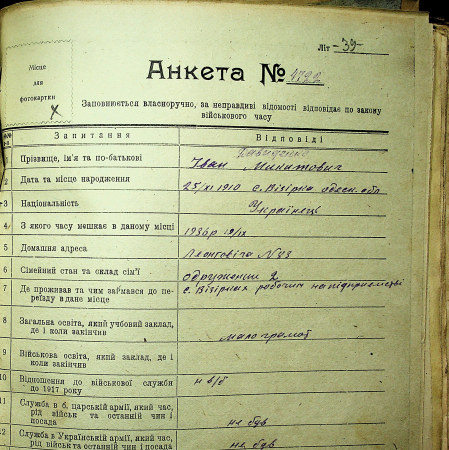 Літ -39-
Місце
для
фотокартки
Анкета № 4722
Заповнюється власноручно, за неправдиві відомості відповідає по закону
військового часу
Запитання Відповіді
Давиденко
Прізвище, ім'я та по-батькові Іван Микитович
2 Дата та місце народження 25/XI 1910 с. Візірка одеск. обл
3 Національність Українець
4 З якого часу мешкає в даному місці 1936р 19/IX
5 Домашня адреса №83
6 Сімейний стан та склад сім'ї одружений 2
7 Де проживав та чим займався до пе- с. Візірках робочим на підприємстві
реїзду в дане місце
8 Загальна освіта, який учбовий заклад,
де і коли закінчив мало грамот
9 Військова освіта, який заклад, де і
коли закінчив
10 Відношення до військової служби н в/б
до 1917 року
11 Служба в б. царській армії, який час,
рід військ та останній чин і
посада не був
12 Служба в Українській армії, який час,
рід військ та останній чин і посада не був